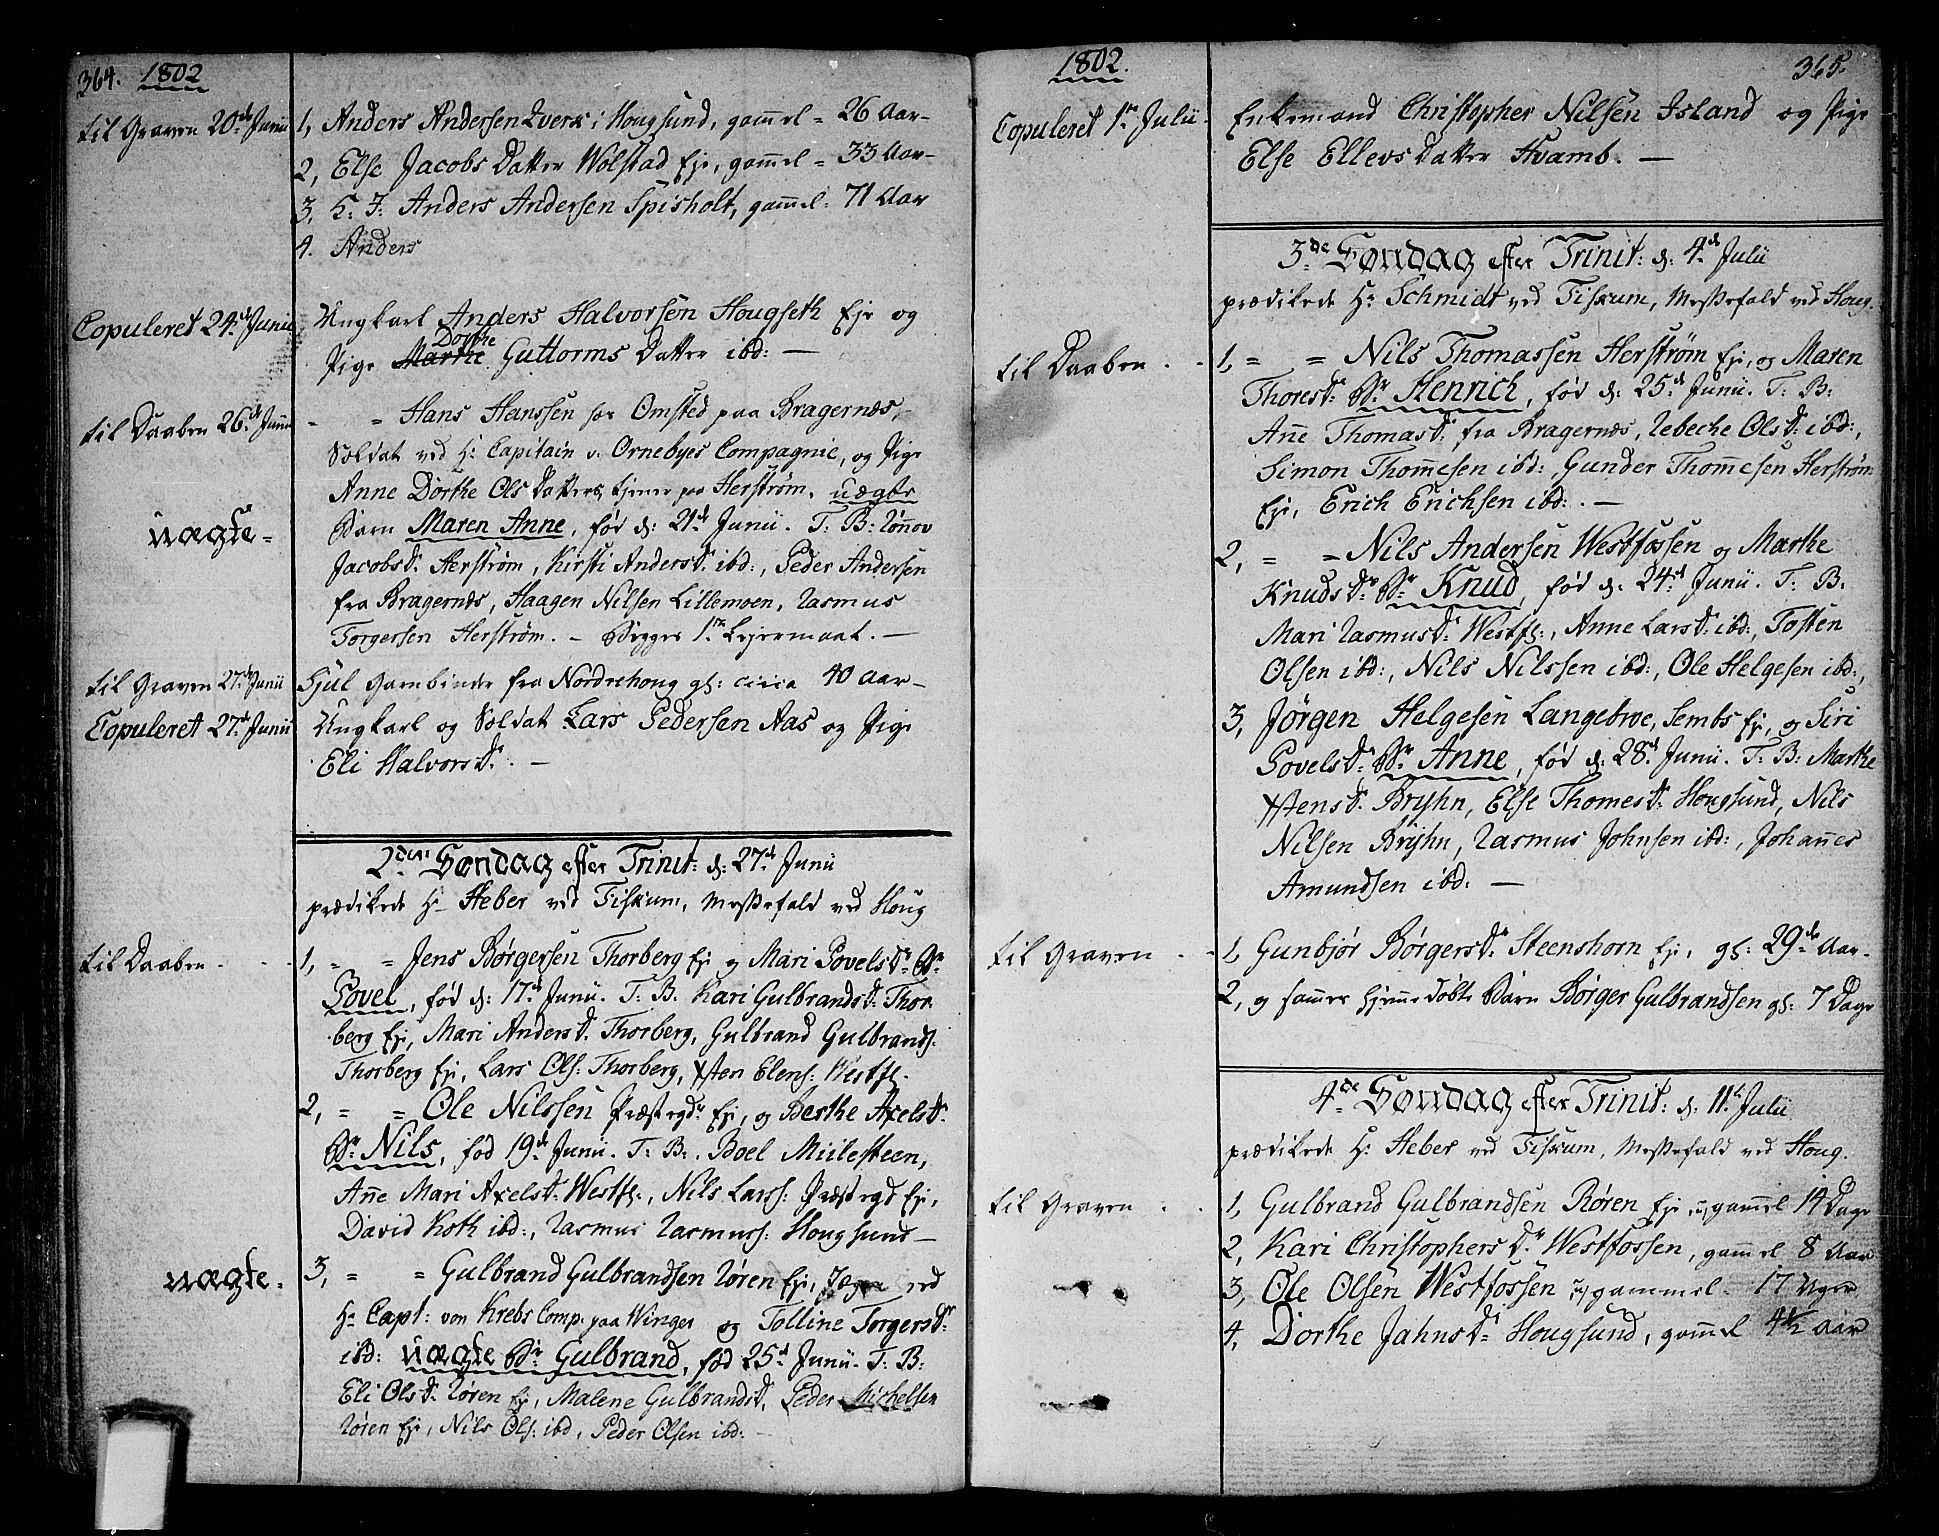 364. 1802
til Graven 20de Junii
1, Anders Andersen Qværk i Hougsund, gammel = 26 Aar-
2, Else Jacobs Datter Wolstad Eje, gammel = 33 Aar-
3, Anders Andersen Spisholt, gammel: 71 Aar
4. Anders
Copuleret 24de Junii
Ungkarl Anders Halvorsen Hougseth Eje og
Pige Marthe Dorthe Guttorms Datter ibd: —
til Daaben 26de Junii
= Hans Hanssen Omsted paa Bragernæs,
Soldat ved Hr Capitain v. Ornebyes Compagnie, og Pige
Anne Dorthe Ols Datters, tjener paa Herstrøm, uægte
uægte =
Barn Maren Anne, fød d: 21de Junii. T: B: Rønnov
Jacobsdr Herstrøm, Kirsti Andersdr ibd:, Peder Andersen
fra Bragernæs, Haagen Nilsen Lillemoen, Rasmus
Torgersen Herstrøm. — Begges 1ste Lejermaal. —
til Graven 27de Junii
Gjul Garnbinder fra Nordrehoug gl: circa 40 Aar-
Copuleret 27de Junii
Ungkarl og Soldat Lars Pedersen Aas og Pige
Eli Halvorsdr. —
2den Søndag efter Trinit: d: 27de Junii
prædikede Hr Heber ved Fiskum, Messefald ved Houg
til Daaben
1, = = Jens Børgersen Thorberg Eje og Mari Povelsdr Br
Povel, fød d: 17de Junii. T: B. Kari Gulbrandsdr Thor-
berg Eje, Mari Andersdr Thorberg, Gulbrand Gulbrands:
Thorberg Eje, Lars Ols: Thorberg, Østen Elens: Westfs.
2, = = Ole Nilssen Præstegdr Eje, og Berthe Axelsdr
Br Nils, fød 19de Junii. T: B:. Boel Miilesteen,
Anne Mari Axelsdr Westfs., Nils Larss: Præstegd Eje,
David Koth ibd:, Rasmus Rasmuss: Hougsund —
uægte =
3, = = Gulbrand Gulbrandsen Røren Eje, Jæger ved
Hr Capt: von Krebs Comp. paa Winger og Tolline Torgersdr
ibd: uægte Br Gulbrand, fød 25de Junii. T: B:
Eli Olsdr Røren Eje, Malene Gulbrandsdr, Peder Michelsen
Røren Eje, Nils Ols: ibd, Peder Olsen ibd: —
1802. 365.
Copuleret 1ste Julii
Enkemand Christopher Nilsen Island og Pige
Else Ellevs Datter Hvamb. —
3de Søndag efter Trinit: d: 4de Julii
prædikede Hr Schmidt ved Fiskum, Messefald ved Houg.
til Daaben
1, = = Nils Thomassen Herstrøm Eje, og Maren
Thoresdr Br Henrich, fød d: 25de Junii. T: B:
Anne Thomasdr fra Bragernæs, Rebeche Olsdr ibd:,
Simon Thommesen ibd:, Gunder Thommesen Herstrøm
Eje, Erich Erichsen ibd:. —
2, = = Nils Andersen Westfossen og Marthe
Knudsdr Br Knud, fød d: 24de Junii. T: B:
Mari Rasmusdr Westfs., Anne Larsdr ibd:, Tosten
Olsen ibd:, Nils Nilssen ibd:, Ole Helgesen ibd:,
3, Jørgen Helgesen Langebroe, Sembs Eje, og Siri
Povelsdr Br Anne, fød d: 28de Junii. T: B: Marthe
Østensdr Bryhn, Else Thomesdr Hougsund, Nils
Nilsen Bryhn, Rasmus Johnsen ibd:, Johannes
Amundsen ibd: —
til Graven
1, Gunbjør Børgersdr Steenshorn Eje, gl: 29de Aar-
2, og sammes hjemmedøbte Barn Børger Gulbrandsen gl: 7 Dage
4de Søndag efter Trinit: d: 11te Julii
prædikede Hr Heber ved Fiskum, Messefald ved Houg.
til Graven
1, Gulbrand Gulbrandsen Røren Eje, gammel 14 Dage
2, Kari Christophersdr Westfossen, gammel 8 Aar
3, Ole Olsen Westfossen gammel 17 Uger
4, Dorthe Jahnsdr Hougsund, gammel 4½ Aar